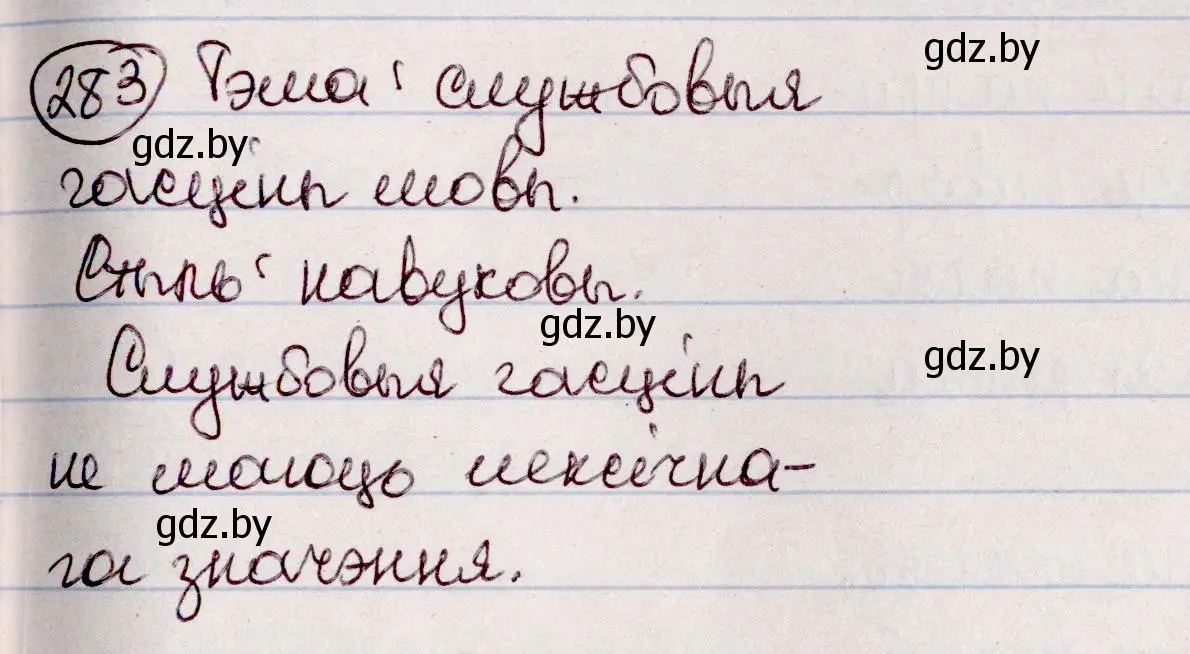 283 Тэма: службовыя
gdz.by
gdz.by
часціны мовы.
Стыль: навуковы.
gdz.by
gdz.by
Службовыя часціны
не маюць лексічна-
gdz.by
га значэння.